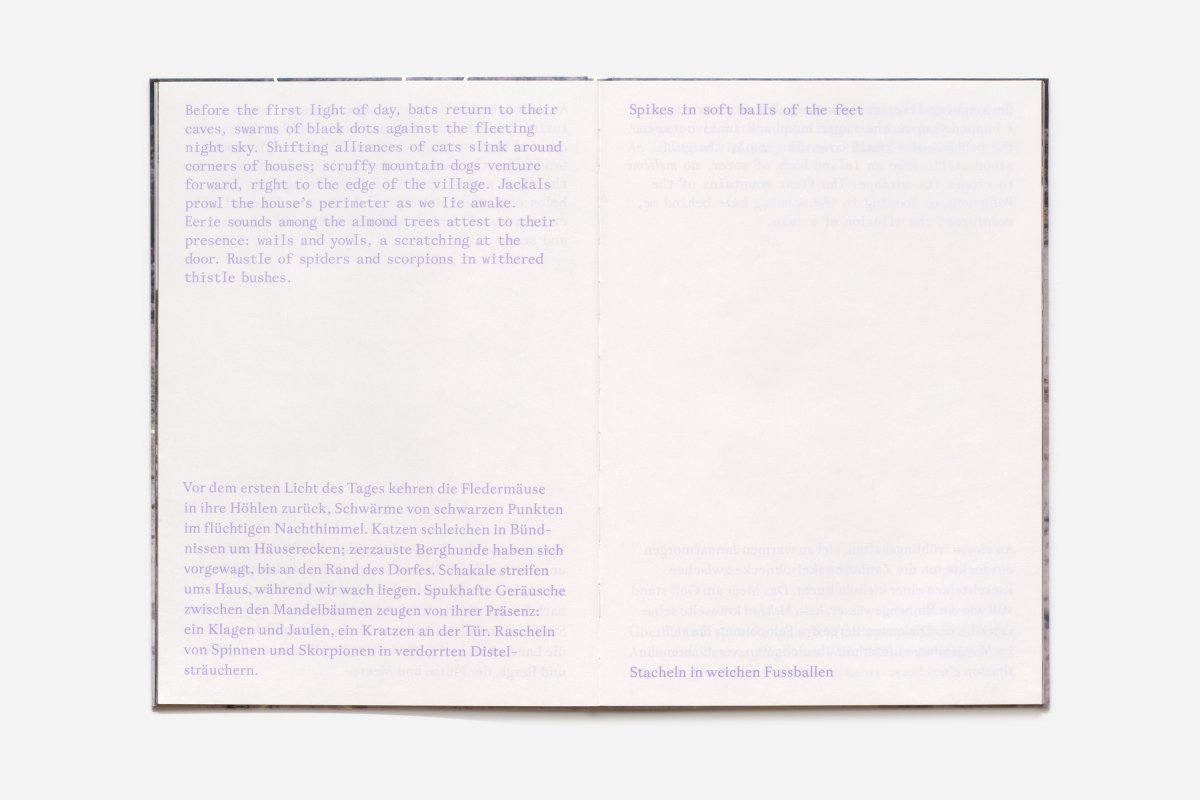 Before the first light of day, bats return to their
caves, swarms of black dots against the fleeting
night sky. Shifting alliances of cats slink around
corners of houses; scruffy mountain dogs venture
forward, right to the edge of the village. Jackals
prowl the house’s perimeter as we lie awake.
Eerie sounds among the almond trees attest to their
presence: wails and yowls, a scratching at the
door. Rustle of spiders and scorpions in withered
thistle bushes.
Vor dem ersten Licht des Tages kehren die Fledermäuse
in ihre Höhlen zurück, Schwärme von schwarzen Punkten
im flüchtigen Nachthimmel. Katzen schleichen in Bünd-
nissen um Häuserecken; zerzauste Berghunde haben sich
vorgewagt, bis an den Rand des Dorfes. Schakale streifen
ums Haus, während wir wach liegen. Spukhafte Geräusche
zwischen den Mandelbäumen zeugen von ihrer Präsenz:
ein Klagen und Jaulen, ein Kratzen an der Tür. Rascheln
von Spinnen und Skorpionen in verdorrten Distel-
sträuchern.
Spikes in soft balls of the feet
Stacheln in weichen Fussballen